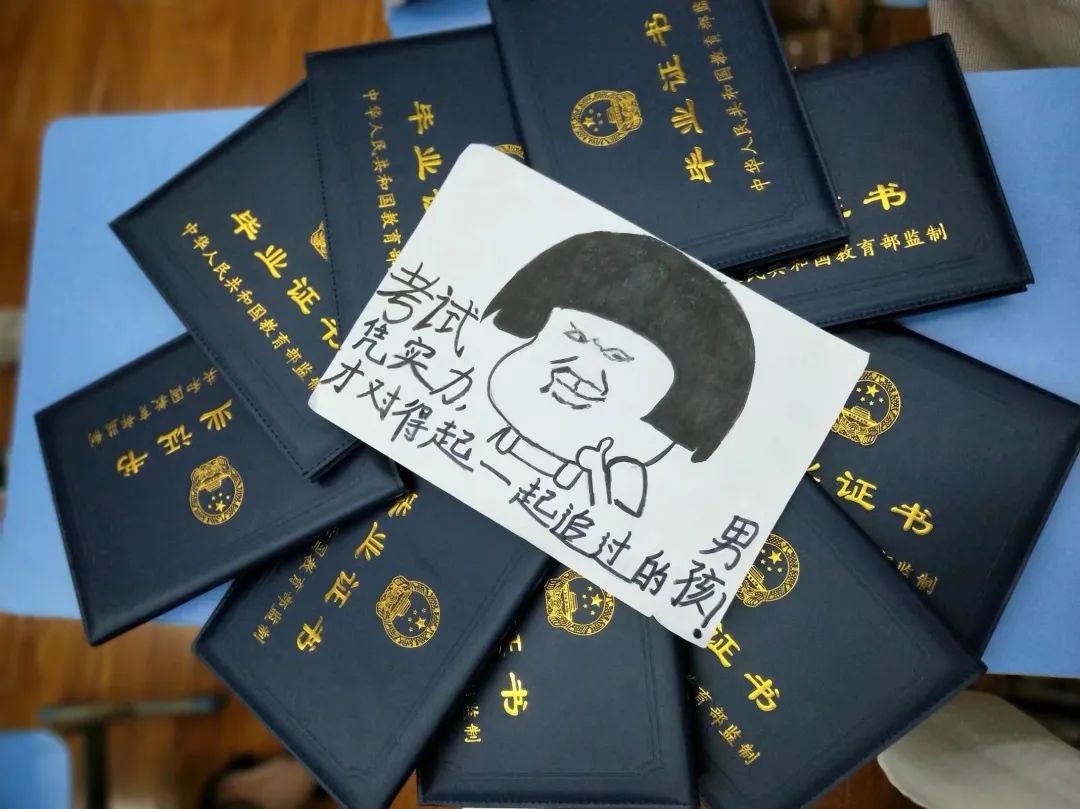 毕业证书
中华人民共和国教育部监
毕业
中华人民共和国教育部
书
民共和国教育部监制
毕业证书
中华人民共和国教育部监制
考试
凭实力,
才对得起一起追过的
男孩!
业证书
共和国教育部监制
证书
业证书
国教育部监制
书
监制
证书
育部监制